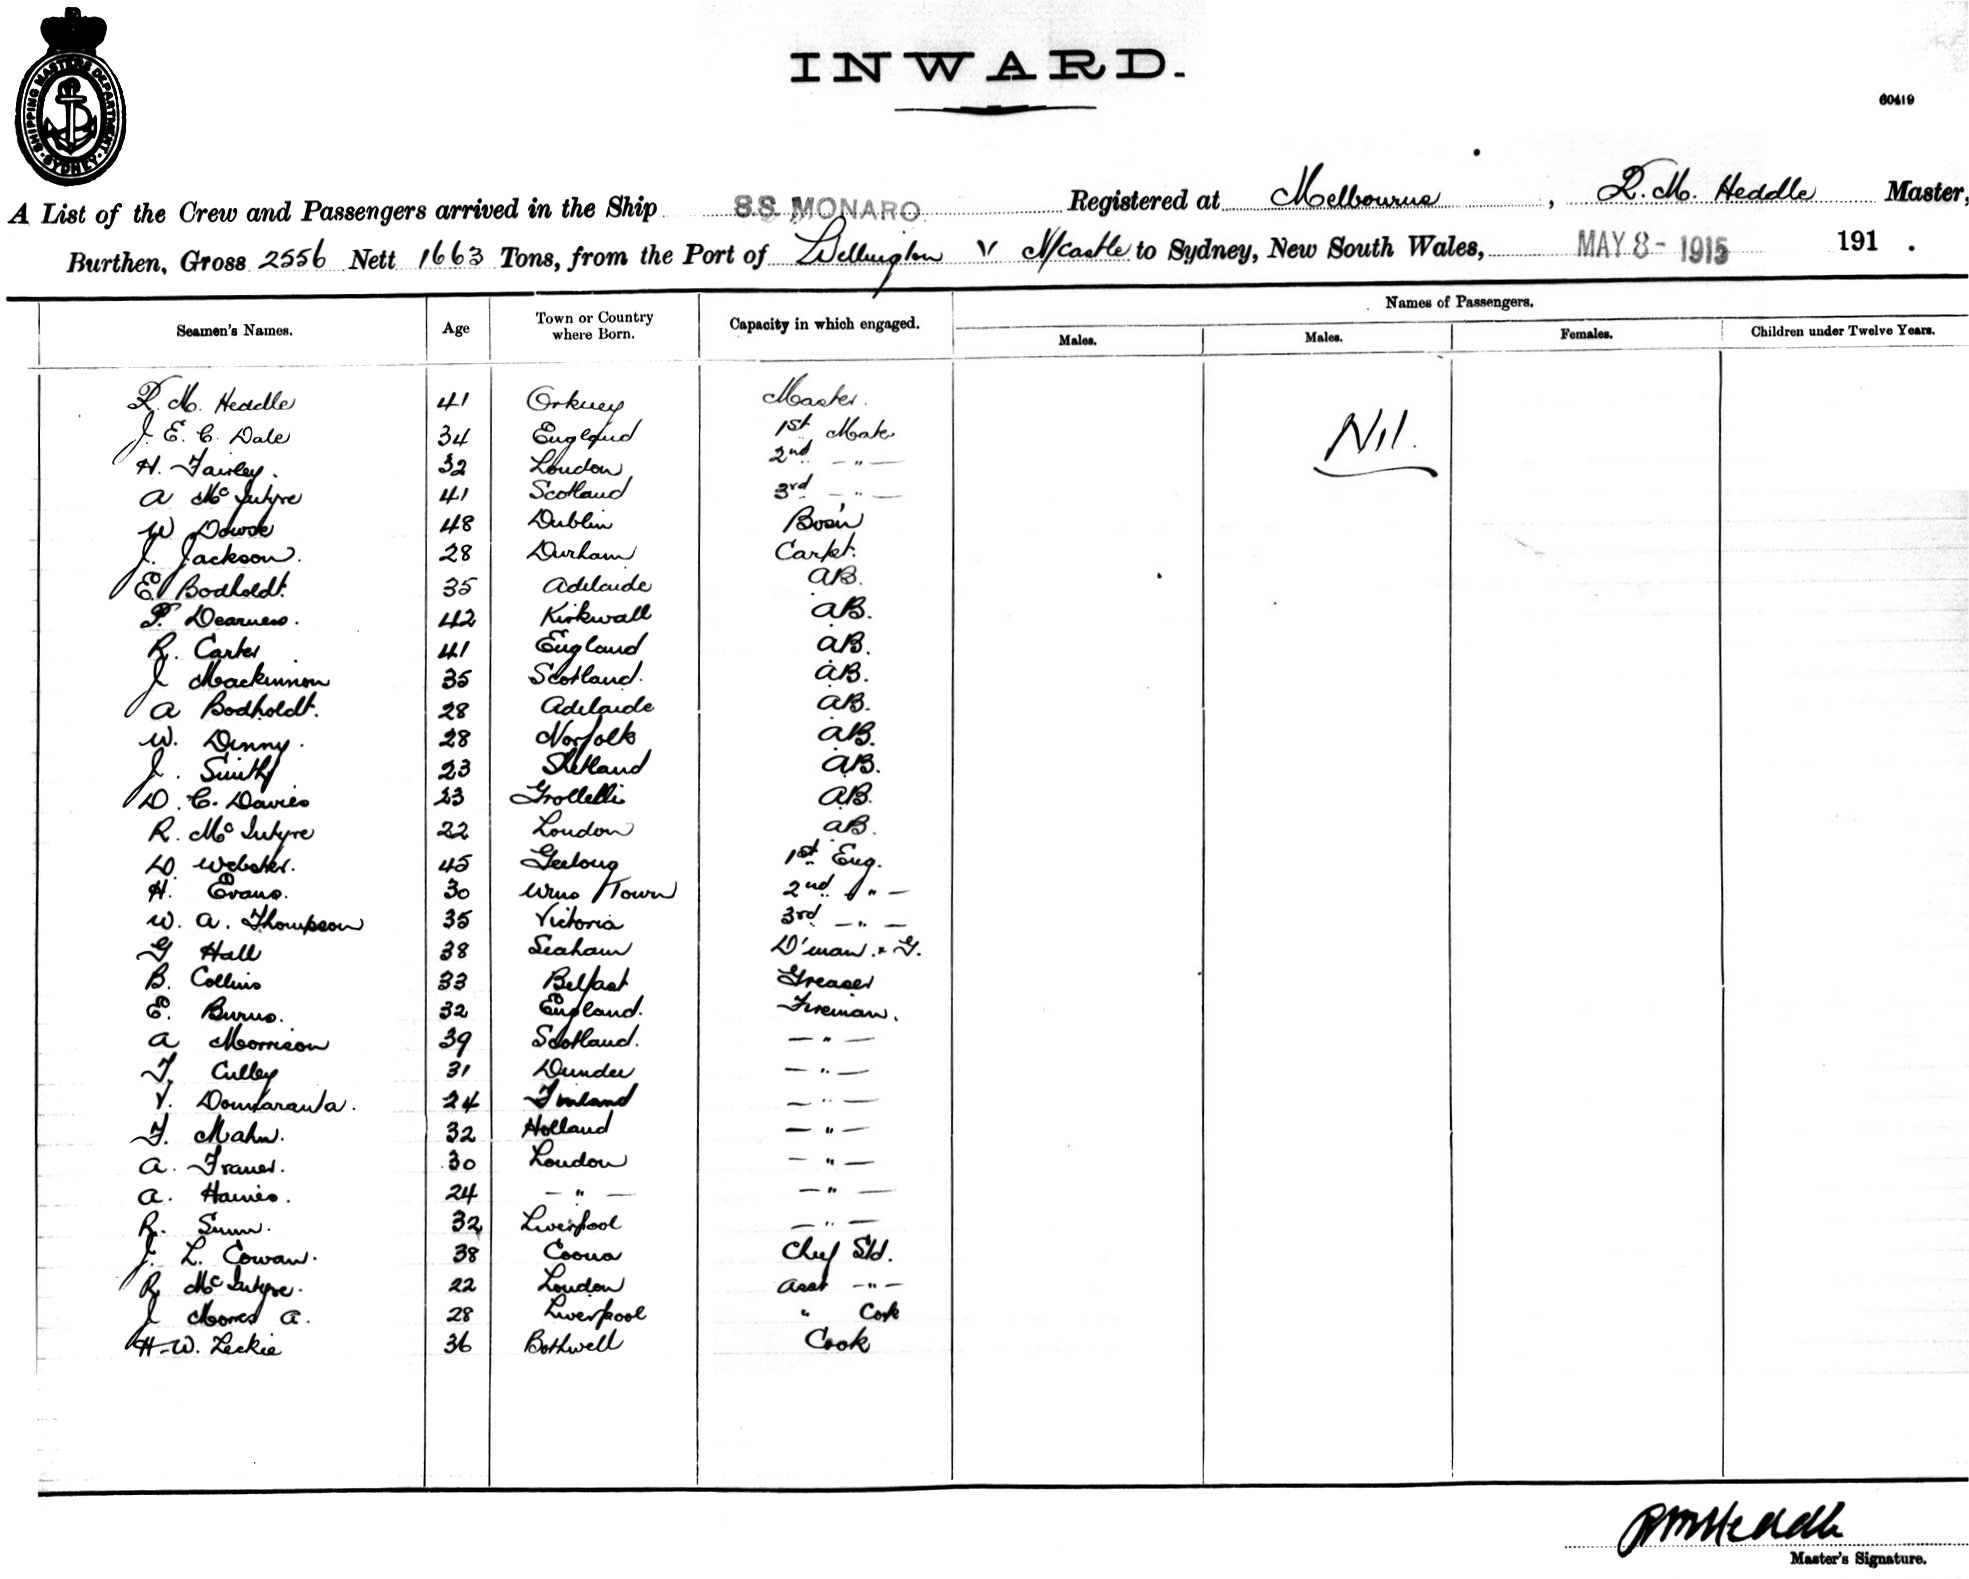 INWARD.
60419
SHIPPING MASTERS DEPARTMENT. SYDNEY
A List of the Crew and Passengers arrived in the Ship S.S. MONARO Registered at Melbourne, R. M. Heddle Master,
Burthen, Gross 2556 Nett 1663 Tons, from the Port of Wellington v N/castle to Sydney, New South Wales, MAY 8 - 1915 191 .
Names of Passengers.
Seamen's Names. Age Town or Country where Born. Capacity in which engaged. Males. Males. Females. Children under Twelve Years.
R. M. Heddle 41 Orkney Master.
J. E. C. Dale 34 England 1st Mate
Nil.
H. Fairley. 32 London 2nd — " —
A McIntyre 41 Scotland 3rd — " —
W Dowse 48 Dublin Bos'n
J. Jackson. 28 Durham Carpt.
E. Bodholdt. 35 Adelaide AB.
P. Dearness. 42 Kirkwall AB.
R. Carter 41 England AB.
J Mackinnon 35 Scotland. AB.
A Bodholdt. 28 Adelaide AB.
W. Dinny. 28 Norfolk AB.
J. Smith 23 Shetland AB.
D. C. Davies 23 AB.
R. McIntyre 22 London AB.
D. Webster. 45 Geelong 1st Eng.
H. Evans. 30 Wms Town 2nd " —
W. A. Thompson 35 Victoria 3rd — " —
G Hall 38 Seaham D'man & G.
B. Collins 33 Belfast Greaser
E. Burns. 32 England. Fireman.
A Morrison 39 Scotland. — " —
F. Culley 31 Dundee — " —
V. 24 Finland — " —
F. Mahn. 32 Holland — " —
A. 30 London — " —
A. Harries. 24 — " — — " —
R. 32 Liverpool — " —
J. L. Cowan. 38 Chief Std.
R. McIntyre. 22 London Asst — " —
J A. 28 Liverpool " Cook
H. W. Leckie 36 Bothwell Cook
RMHeddle
Master's Signature.